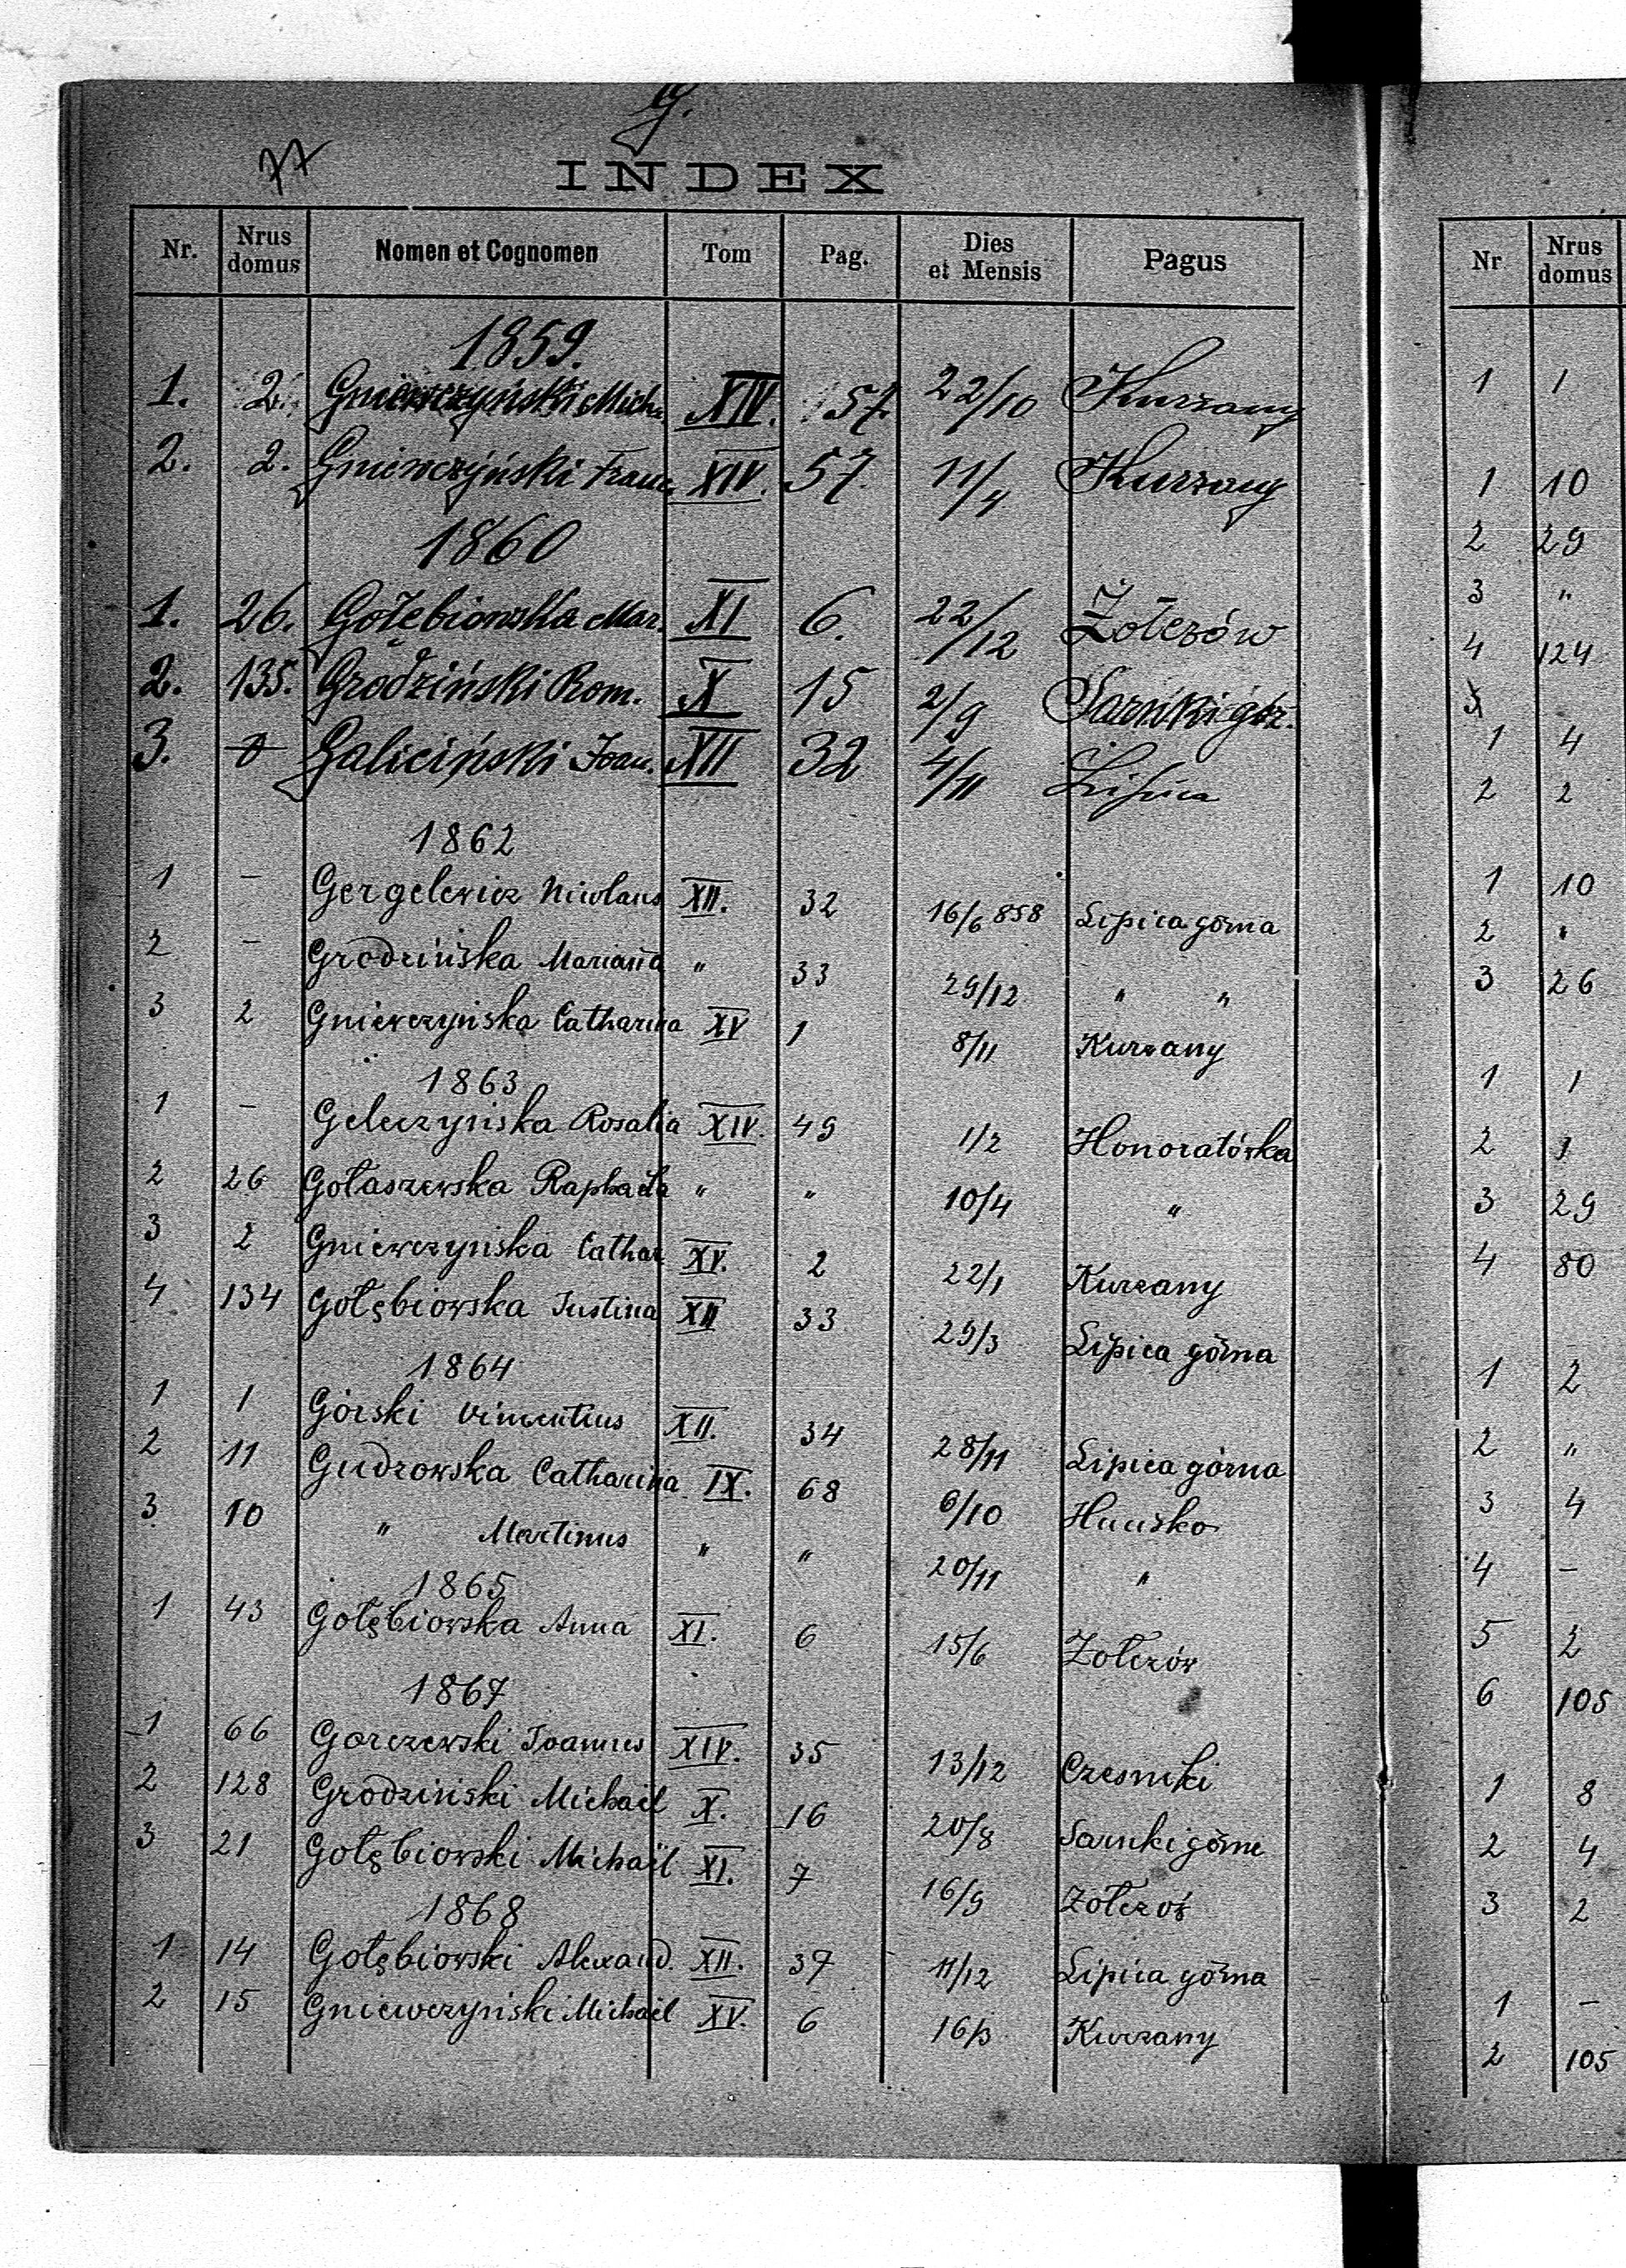 G.
77
INDEX
Nr. Nrus domus Nomen et Cognomen Tom Pag. Dies et Mensis Pagus
1859.
1. 2. Gniewczyński Mich. XIV. 57. 22/10 Kurzany
2. 2. Gniewczyński Franc. XIV. 57. 11/4 Kurzany
1860
1. 26. Gołębiowska Mar. XI 6. 22/12 Żołczów
2. 135. Grodziński Rom. X 15 2/9 Sarnki gór.
3. 0 Galiciński Joan. XII 32 4/11 Lipica
1862
1 — Gergelewicz Nicolaus XII. 32 16/6 858 Lipica górna
2 — Grodzińska Marianna " 33 29/12 " "
3 2 Gniewczyńska Catharina XV 1 8/11 Kurzany
1863
1 — Geleczyńska Rosalia XIV. 49 1/2 Honoratówka
2 26 Gołaszewska Raphaela " " 10/4 "
3 2 Gniewczyńska Cathar XV. 2 22/1 Kurzany
4 134 Gołębiowska Justina XII 33 29/3 Lipica górna
1864
1 1 Górski Vincentius XII. 34 28/11 Lipica górna
2 11 Gudzowska Catharina IX. 68 6/10 Hucisko
3 10 " Martinus " " 20/11 "
1865
1 43 Gołębiowska Anna XI. 6 15/6 Żołczów
1867
1 66 Gorczewski Joannes XIV. 35 13/12 Czesniki
2 128 Grodziński Michaël X. 16 20/8 Sarnki górne
3 21 Gołębiowski Michaël XI. 7 16/9 Żołczów
1868
1 14 Gołębiowski Alexand. XII. 37 11/12 Lipica górna
2 15 Gniewczyński Michaël XV. 6 16/3 Kurzany
Nr Nrus domus
1 1
1 10
2 29
3 "
4 124
1 4
2 2
1 10
2 "
3 26
1 1
2 1
3 29
4 80
1 2
2 "
3 4
4 —
5 2
6 105
1 8
2 4
3 2
1 —
2 105